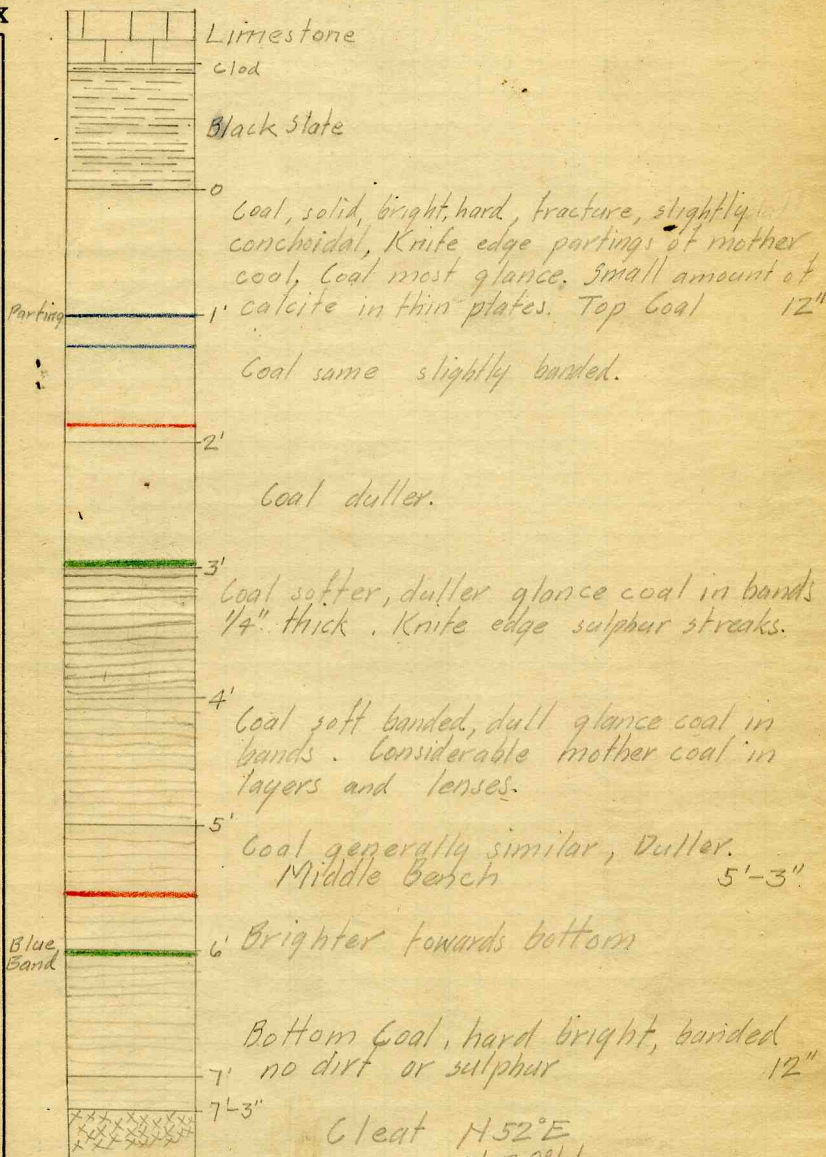 x
Limestone
Clod
Black Slate
0
Coal, solid, bright, hard, fracture, slightly
conchoidal, Knife edge partings of mother
coal, Coal most glance. Small amount of
Parting 1' calcite in thin plates. Top Coal 12"
Coal same slightly banded.
2'
Coal duller.
3'
Coal softer, duller glance coal in bands
1/4" thick. Knife edge sulphur streaks.
4'
Coal soft banded, dull glance coal in
bands. Considerable mother coal in
layers and lenses.
5'
Coal generally similar, Duller.
Middle Bench 5'-3"
Blue Band 6' Brighter towards bottom
Bottom Coal, hard bright, banded
7' no dirt or sulphur 12"
7'-3"
Cleat N52°E